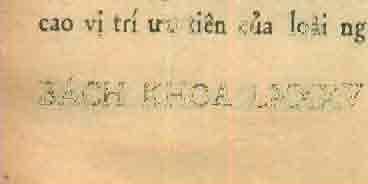 cao vị trí ưu tiên của loài ng
BÁCH KHOA LXXXV